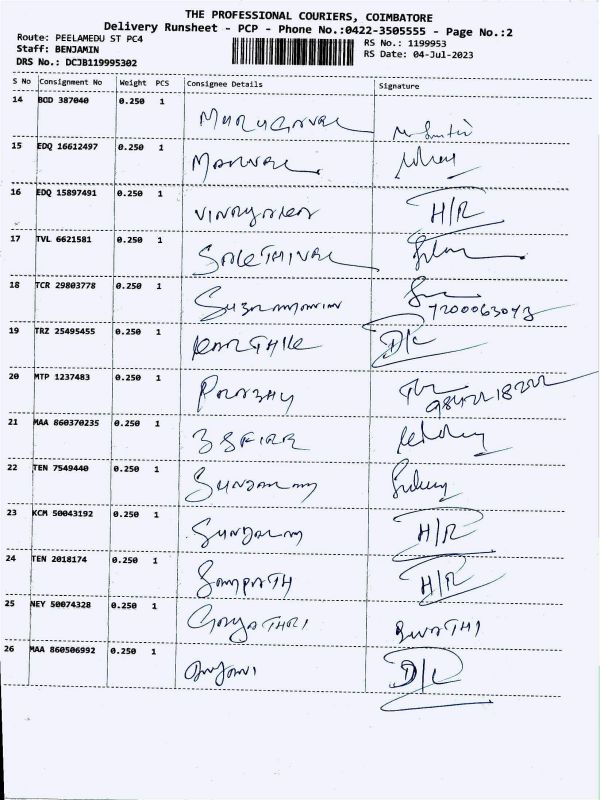 THE PROFESSIONAL COURIERS, COIMBATORE
Delivery Runsheet - PCP - Phone No.:0422-3505555 - Page No.:2
Route: PEELAMEDU ST PC4
RS No.: 1199953
Staff: BENJAMIN
RS Date: 04-Jul-2023
DRS No.: DCJB119995302
S No Consignment No Weight PCS Consignee Details Signature
14 BOD 387040 0.250 1 MURUGAVEL
15 EDQ 16612497 0.250 1
16 EDQ 15897491 0.250 1 VINAYAKA H/R
17 TVL 6621581 0.250 1 SAKTHIVEL
18 TCR 29803778 0.250 1 Subramanian
7200063043
19 TRZ 25495455 0.250 1 KARTHIK D/C
20 MTP 1237483 0.250 1
9842218222
21 MAA 860370235 0.250 1
22 TEN 7549440 0.250 1
23 KCM 50043192 0.250 1 H/R
24 TEN 2018174 0.250 1 SAMPATH H/R
25 NEY 50074328 0.250 1 GAYATHRI SWATHI
26 MAA 860506992 0.250 1 D/C